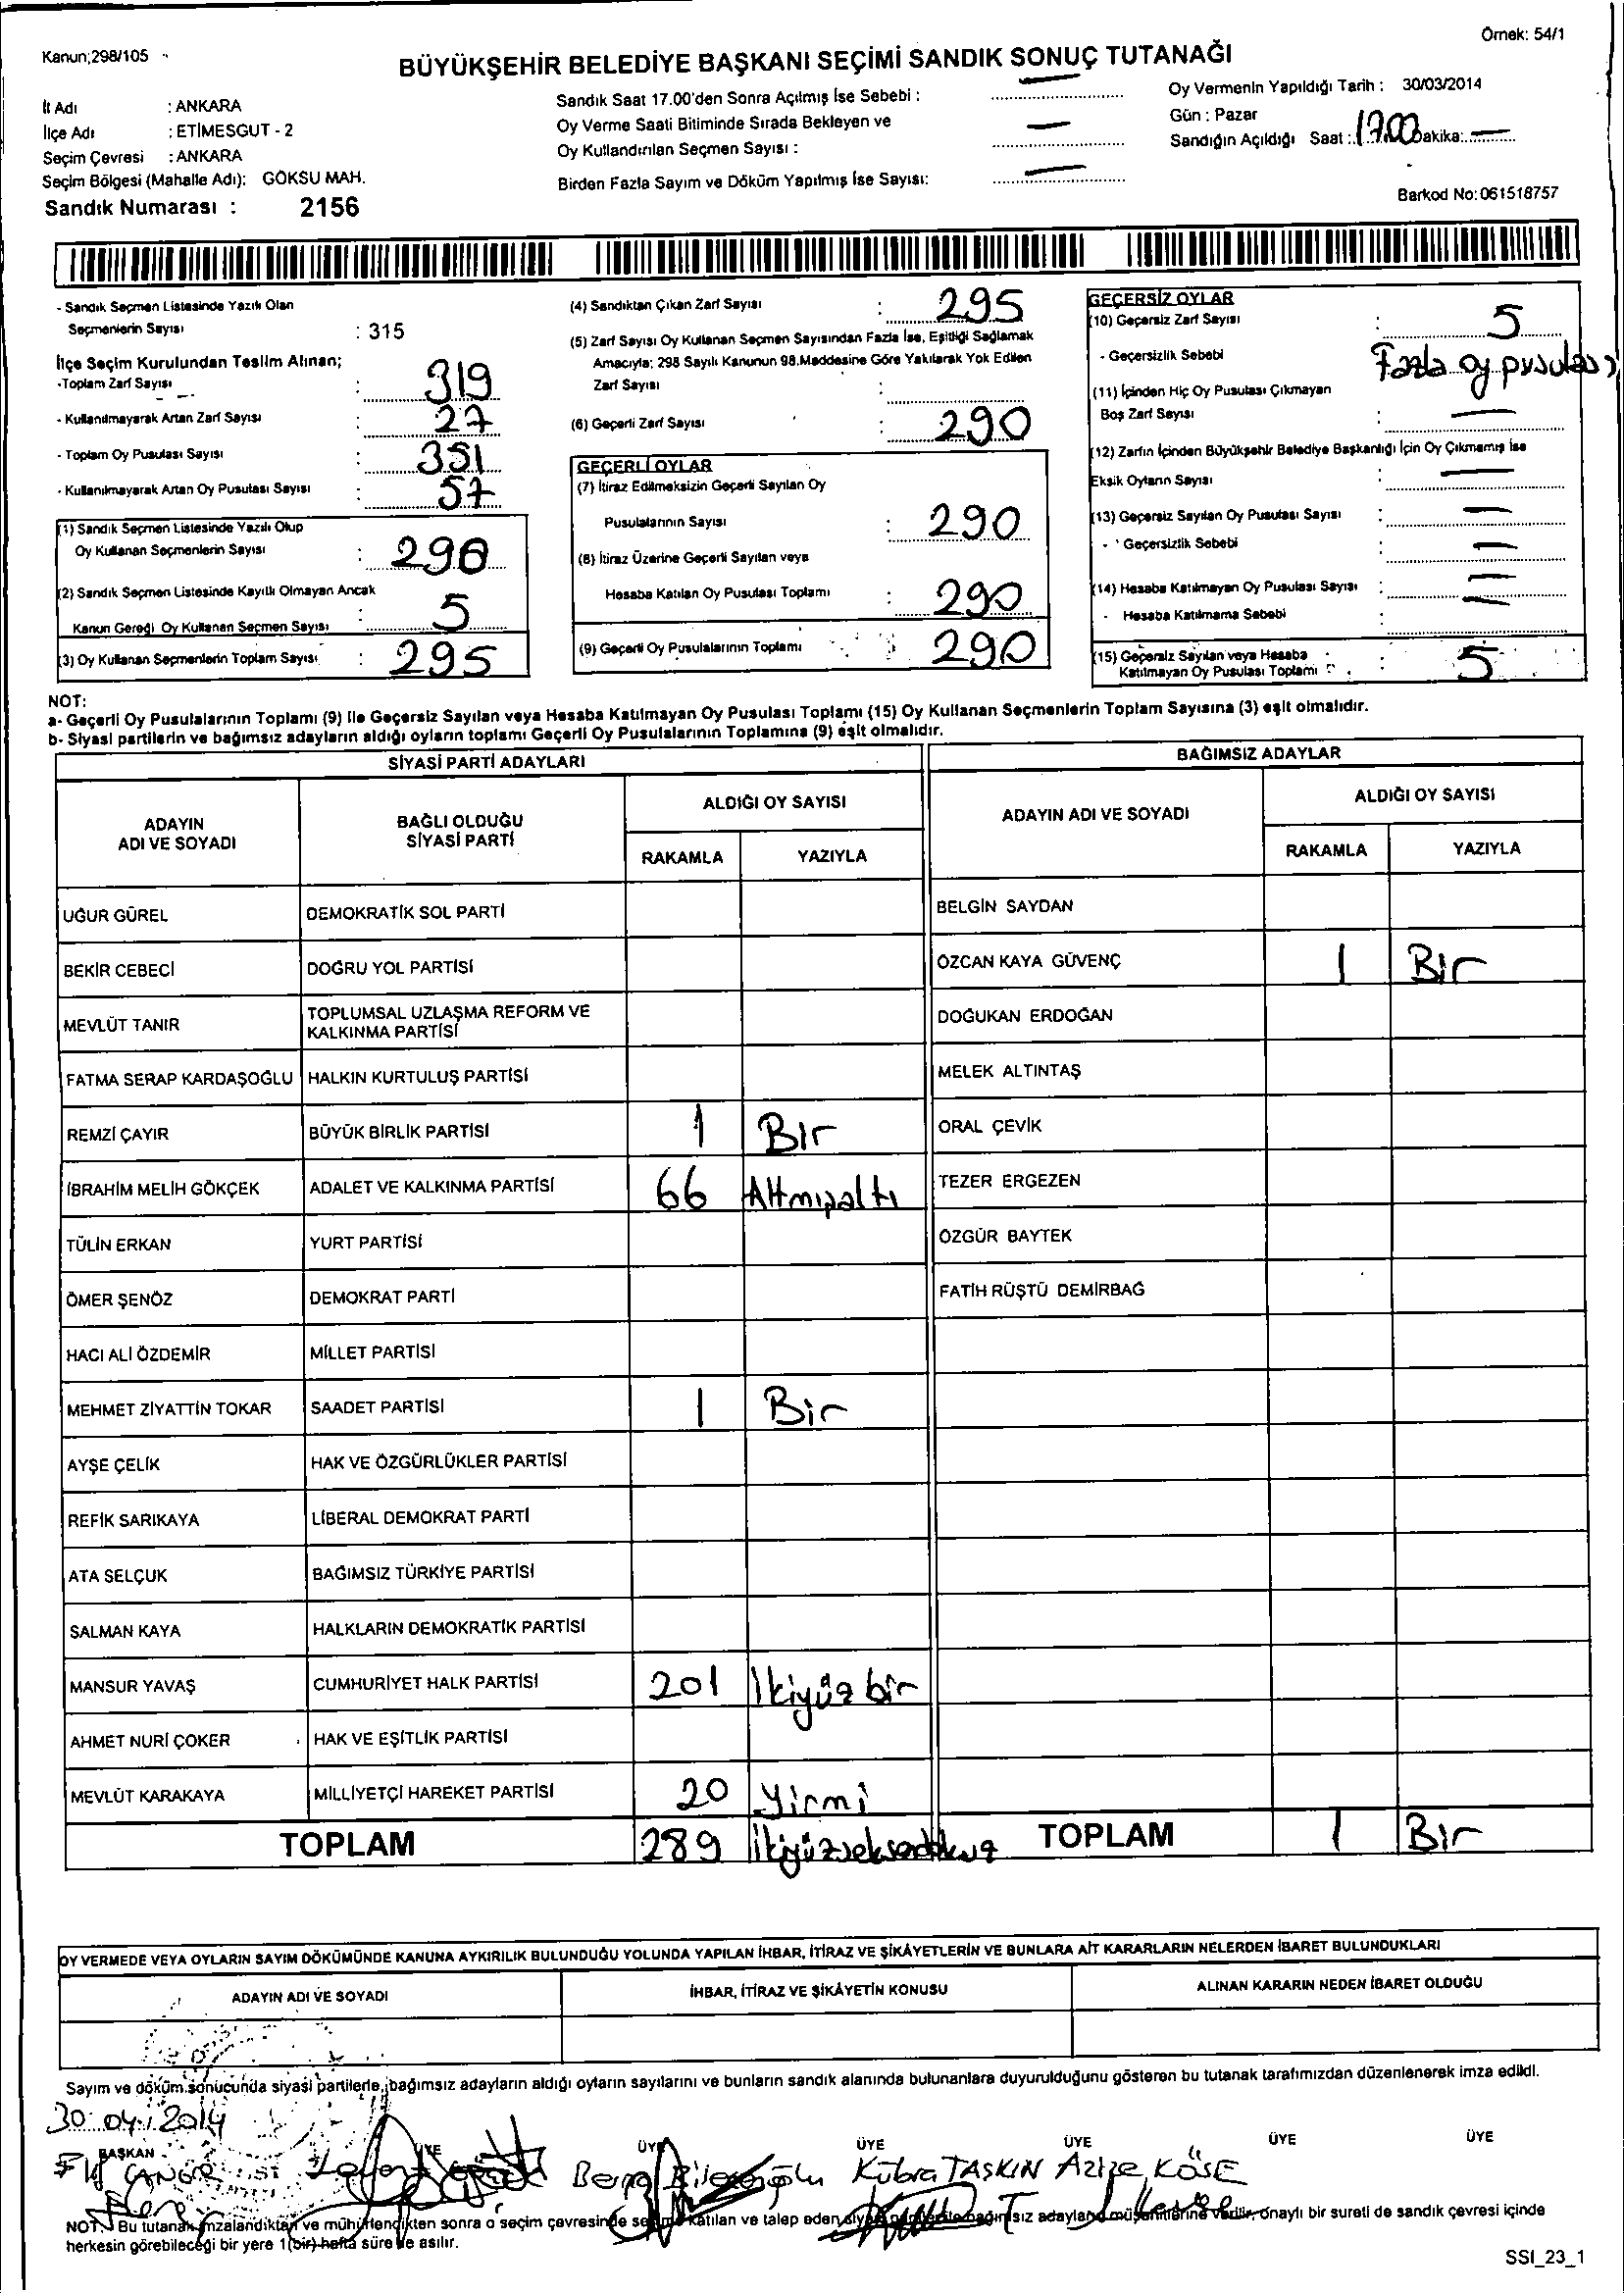 Örnek: 54/1
Kanun;298/105
BÜYÜKŞEHİR BELEDİYE BAŞKANI SEÇİMİ SANDIK SONUÇ TUTANAĞI
İl Adı : ANKARA
İlçe Adı : ETİMESGUT - 2
Seçim Çevresi : ANKARA
Seçim Bölgesi (Mahalle Adı): GÖKSU MAH.
Sandık Numarası : 2156
Sandık Saat 17.00'den Sonra Açılmış İse Sebebi : —
Oy Verme Saati Bitiminde Sırada Bekleyen ve
Oy Kullandırılan Seçmen Sayısı : —
Birden Fazla Sayım ve Döküm Yapılmış İse Sayısı: —
Oy Vermenin Yapıldığı Tarih : 30/03/2014
Gün : Pazar
Sandığın Açıldığı Saat : 17.00 Dakika: —
Barkod No: 061518757
- Sandık Seçmen Listesinde Yazılı Olan
Seçmenlerin Sayısı : 315
İlçe Seçim Kurulundan Teslim Alınan;
-Toplam Zarf Sayısı : 319
- Kullanılmayarak Artan Zarf Sayısı : 27
- Toplam Oy Pusulası Sayısı : 351
- Kullanılmayarak Artan Oy Pusulası Sayısı : 57
(1) Sandık Seçmen Listesinde Yazılı Olup
Oy Kullanan Seçmenlerin Sayısı : 290
(2) Sandık Seçmen Listesinde Kayıtlı Olmayan Ancak
Kanun Gereği Oy Kullanan Seçmen Sayısı : 5
(3) Oy Kullanan Seçmenlerin Toplam Sayısı : 295
(4) Sandıktan Çıkan Zarf Sayısı : 295
(5) Zarf Sayısı Oy Kullanan Seçmen Sayısından Fazla İse, Eşitliği Sağlamak
Amacıyla; 298 Sayılı Kanunun 98.Maddesine Göre Yakılarak Yok Edilen
Zarf Sayısı :
(6) Geçerli Zarf Sayısı : 290
GEÇERLİ OYLAR
(7) İtiraz Edilmeksizin Geçerli Sayılan Oy
Pusulalarının Sayısı : 290
(8) İtiraz Üzerine Geçerli Sayılan veya
Hesaba Katılan Oy Pusulası Toplamı : 290
(9) Geçerli Oy Pusulalarının Toplamı : 290
GEÇERSİZ OYLAR
(10) Geçersiz Zarf Sayısı : 5
- Geçersizlik Sebebi Fazla oy pusulası
(11) İçinden Hiç Oy Pusulası Çıkmayan
Boş Zarf Sayısı : —
(12) Zarfın İçinden Büyükşehir Belediye Başkanlığı İçin Oy Çıkmamış İse
Eksik Oyların Sayısı : —
(13) Geçersiz Sayılan Oy Pusulası Sayısı : —
- Geçersizlik Sebebi : —
(14) Hesaba Katılmayan Oy Pusulası Sayısı : —
- Hesaba Katılmama Sebebi : —
(15) Geçersiz Sayılan veya Hesaba
Katılmayan Oy Pusulası Toplamı : 5
NOT:
a- Geçerli Oy Pusulalarının Toplamı (9) ile Geçersiz Sayılan veya Hesaba Katılmayan Oy Pusulası Toplamı (15) Oy Kullanan Seçmenlerin Toplam Sayısına (3) eşit olmalıdır.
b- Siyasi partilerin ve bağımsız adayların aldığı oyların toplamı Geçerli Oy Pusulalarının Toplamına (9) eşit olmalıdır.
SİYASİ PARTİ ADAYLARI
ADAYIN ADI VE SOYADI BAĞLI OLDUĞU SİYASİ PARTİ ALDIĞI OY SAYISI
RAKAMLA YAZIYLA
UĞUR GÜREL DEMOKRATİK SOL PARTİ
BEKİR CEBECİ DOĞRU YOL PARTİSİ
MEVLÜT TANIR TOPLUMSAL UZLAŞMA REFORM VE KALKINMA PARTİSİ
FATMA SERAP KARDAŞOĞLU HALKIN KURTULUŞ PARTİSİ
REMZİ ÇAYIR BÜYÜK BİRLİK PARTİSİ 1 Bir
İBRAHİM MELİH GÖKÇEK ADALET VE KALKINMA PARTİSİ 66 Altmışaltı
TÜLİN ERKAN YURT PARTİSİ
ÖMER ŞENÖZ DEMOKRAT PARTİ
HACI ALİ ÖZDEMİR MİLLET PARTİSİ
MEHMET ZİYATTİN TOKAR SAADET PARTİSİ 1 Bir
AYŞE ÇELİK HAK VE ÖZGÜRLÜKLER PARTİSİ
REFİK SARIKAYA LİBERAL DEMOKRAT PARTİ
ATA SELÇUK BAĞIMSIZ TÜRKİYE PARTİSİ
SALMAN KAYA HALKLARIN DEMOKRATİK PARTİSİ
MANSUR YAVAŞ CUMHURİYET HALK PARTİSİ 201 İkiyüz bir
AHMET NURİ ÇOKER HAK VE EŞİTLİK PARTİSİ
MEVLÜT KARAKAYA MİLLİYETÇİ HAREKET PARTİSİ 20 Yirmi
TOPLAM 289 İkiyüzseksendokuz
BAĞIMSIZ ADAYLAR
ADAYIN ADI VE SOYADI ALDIĞI OY SAYISI
RAKAMLA YAZIYLA
BELGİN SAYDAN
ÖZCAN KAYA GÜVENÇ 1 Bir
DOĞUKAN ERDOĞAN
MELEK ALTINTAŞ
ORAL ÇEVİK
TEZER ERGEZEN
ÖZGÜR BAYTEK
FATİH RÜŞTÜ DEMİRBAĞ
TOPLAM 1 Bir
OY VERMEDE VEYA OYLARIN SAYIM DÖKÜMÜNDE KANUNA AYKIRILIK BULUNDUĞU YOLUNDA YAPILAN İHBAR, İTİRAZ VE ŞİKÂYETLERİN VE BUNLARA AİT KARARLARIN NELERDEN İBARET BULUNDUKLARI
ADAYIN ADI VE SOYADI İHBAR, İTİRAZ VE ŞİKÂYETİN KONUSU ALINAN KARARIN NEDEN İBARET OLDUĞU
Sayım ve döküm sonucunda siyasi partilerle, bağımsız adayların aldığı oyların sayılarını ve bunların sandık alanında bulunanlara duyurulduğunu gösteren bu tutanak tarafımızdan düzenlenerek imza edildi.
30.04.2014
BAŞKAN ÜYE ÜYE ÜYE ÜYE ÜYE ÜYE
Kübra TAŞKIN Azize KÖSE
NOT: Bu tutanak imzalandıktan ve mühürlendikten sonra o seçim çevresinde seçime katılan ve talep eden siyasi partilerle bağımsız adayların müşahitlerine verilir, onaylı bir sureti de sandık çevresi içinde
herkesin görebileceği bir yere 1(bir) hafta süre ile asılır.
SSI_23_1